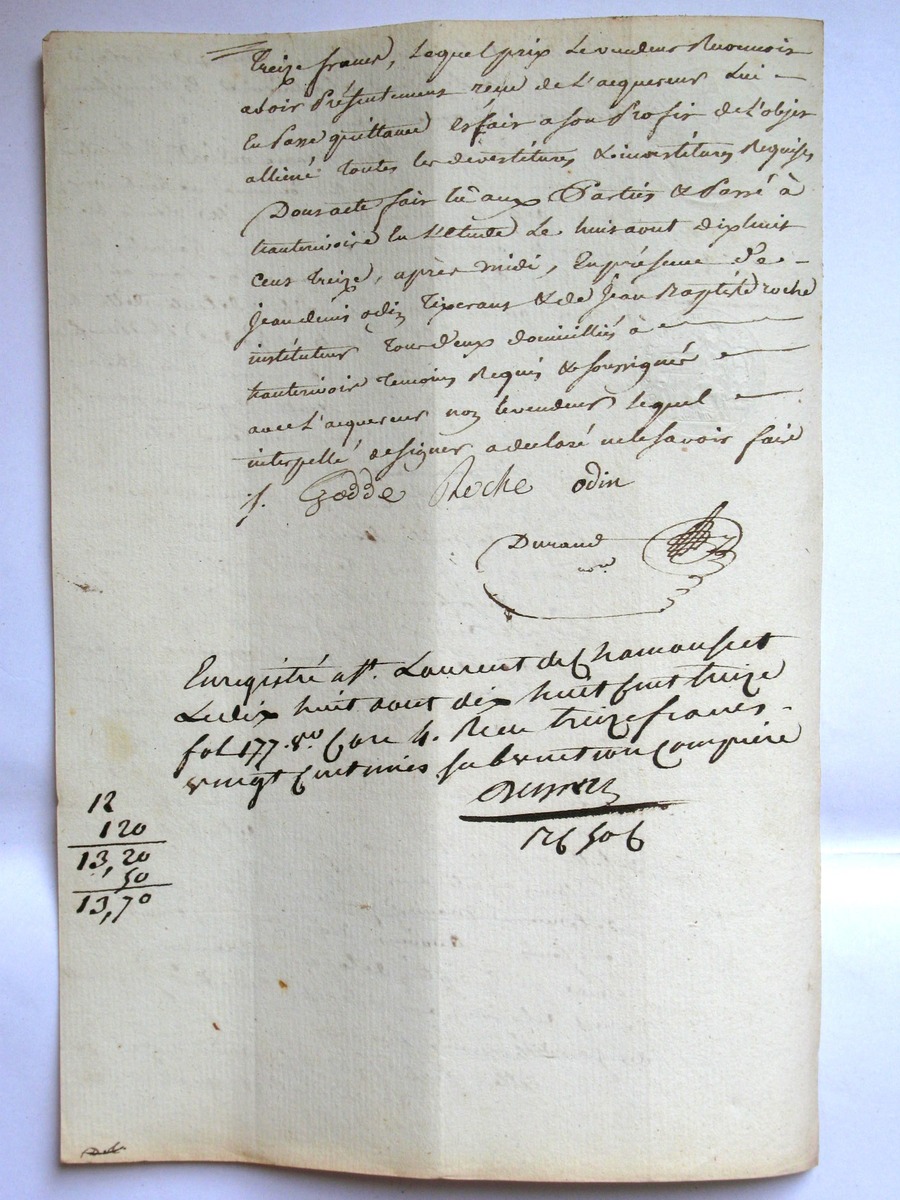 treize francs, Lequel prix Le vendeur Reconnoit
avoir Présentement reçu de L'acquereur Lui
En Passe quittance et fait a son Profit de L'objet
alliené toutes les devestitures & investitures Requises
Dont acte fait lû aux Parties & Passé à
hauterivoire En L'Etude Le huit aout dix huit
Cent treize, après midi, En présence de
Jean denis odin Tixerant & de Jean Baptiste roche
instituteur tous deux domicilliés à
hauterivoire temoins Requis & soussignés
avec L'acquereur non le vendeur Lequel
interpellé de signer a declaré ne le savoir faire
f. Godde Roche odin
Durand
nore
Enregistré a St. Laurent de Chamousset
Le dix huit aout dix huit cent treize
fol 177. vo Case 4. Reçu treize francs
vingt centimes subvention comprise
126 506
12
1 20
13,20
50
13,70